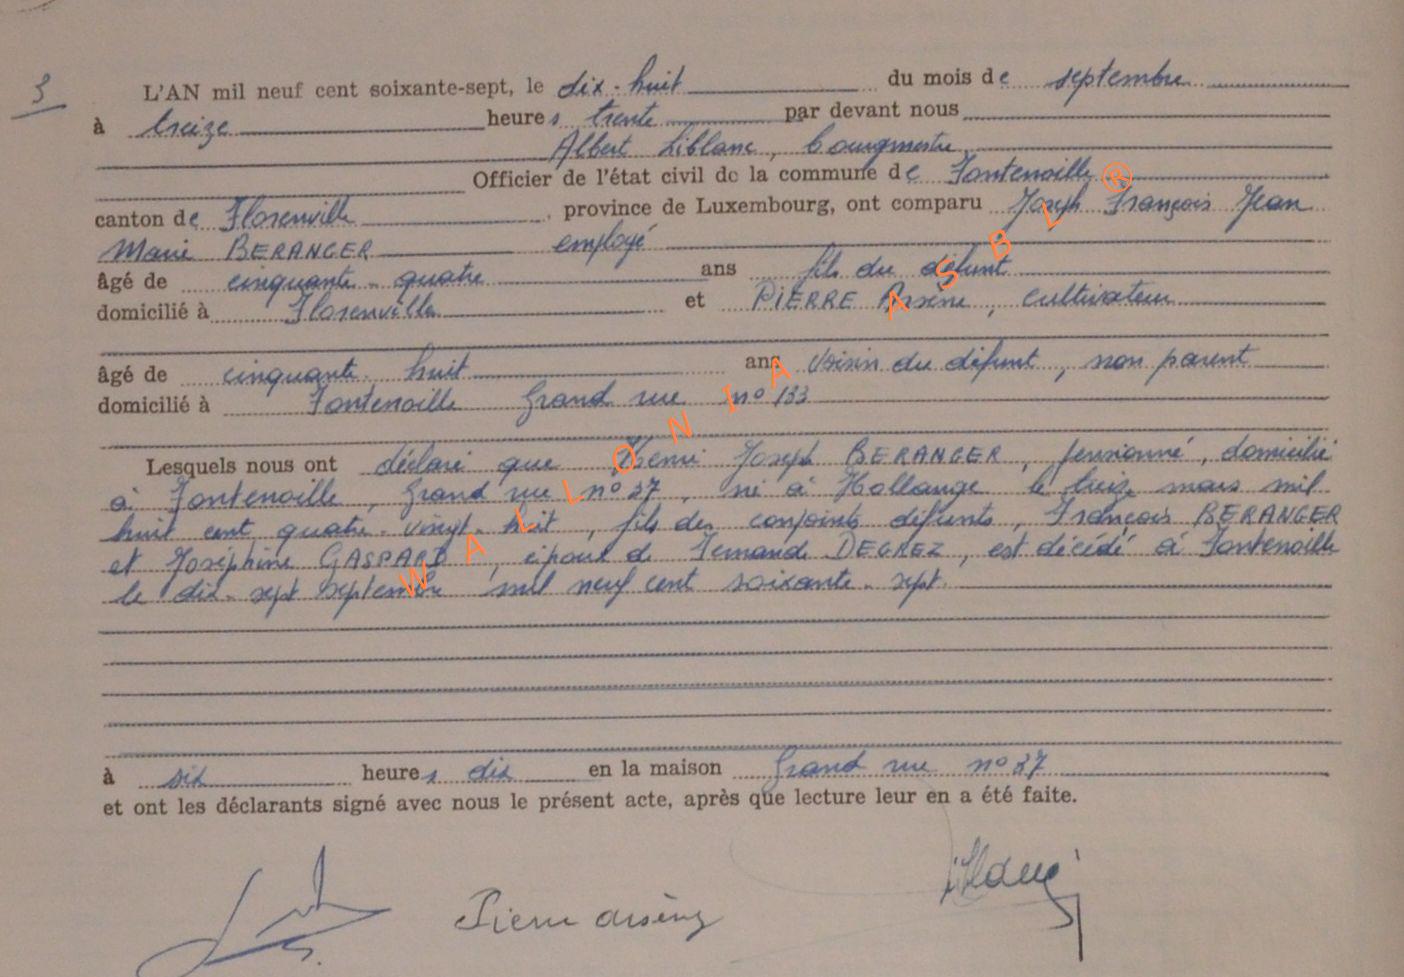 3
L'AN mil neuf cent soixante-sept, le dix-huit du mois de septembre
à treize heures trente par devant nous
Albert Liblanc, bourgmestre,
Officier de l'état civil de la commune de Fontenoille
canton de Florenville, province de Luxembourg, ont comparu Joseph François Jean
Marie BERANGER employé
âgé de cinquante-quatre ans fils du défunt
domicilié à Florenville et PIERRE Arsène, cultivateur
âgé de cinquante-huit ans voisin du défunt, non parent
domicilié à Fontenoille Grand rue n° 133
Lesquels nous ont déclaré que Henri Joseph BERANGER, pensionné, domicilié
à Fontenoille, Grand rue n° 37, né à Hollange le treize mars mil
huit cent quatre-vingt-huit, fils des conjoints défunts, François BERANGER
et Joséphine GASPARD, époux de Fernande DEGREZ, est décédé à Fontenoille
le dix-sept septembre mil neuf cent soixante-sept.
à six heures dix en la maison Grand rue n° 37
et ont les déclarants signé avec nous le présent acte, après que lecture leur en a été faite.
Pierre Arsène
WALLONIA ASBL®